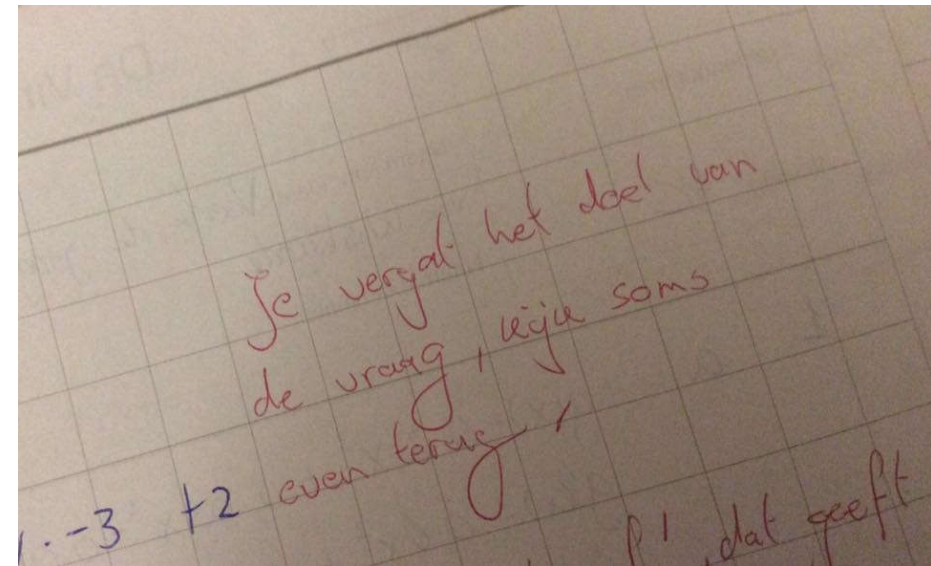 Je vergat het doel van
de vraag, kijk soms
even terug!
. -3 +2
f' dat geeft